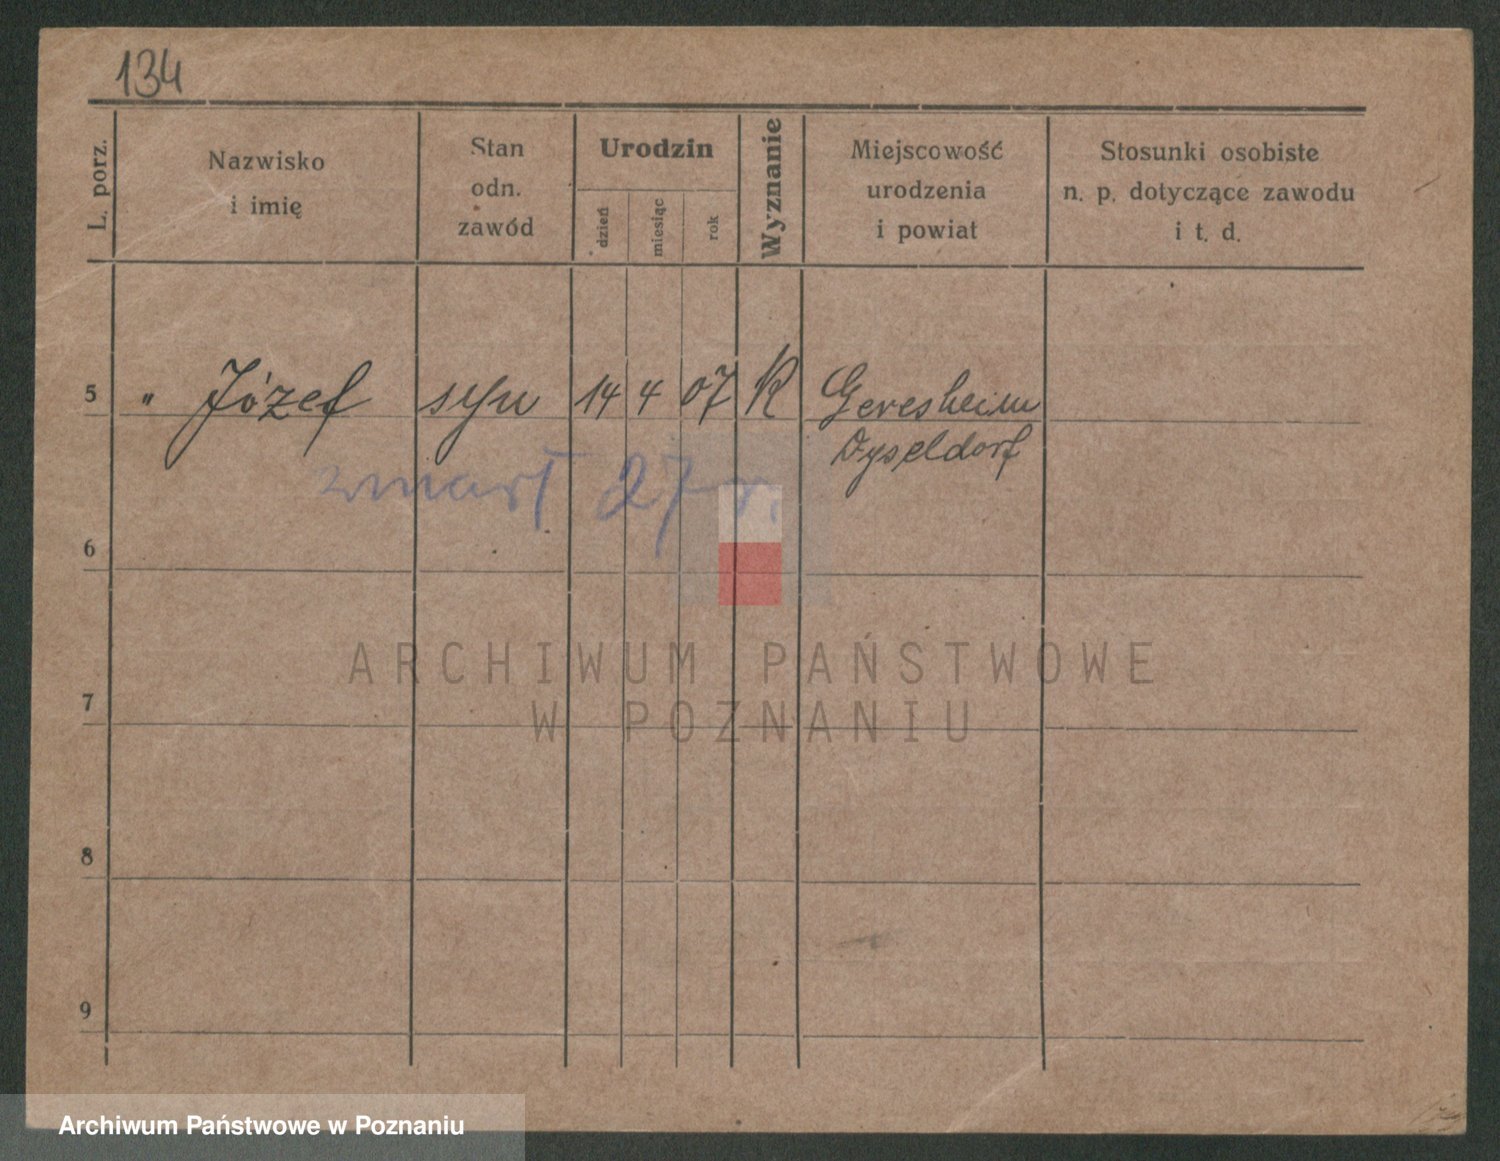 134
L. porz.
Nazwisko
i imię
Stan
odn.
zawód
Urodzin
dzień
miesiąc
rok
Wyznanie
Miejscowość
urodzenia
i powiat
Stosunki osobiste
n. p. dotyczące zawodu
i t. d.
5 " Józef syn 14 4 07 K Geresheim
Dyseldorf
zmarł 27 r.
6
ARCHIWUM PAŃSTWOWE
7
W POZNANIU
8
9
Archiwum Państwowe w Poznaniu